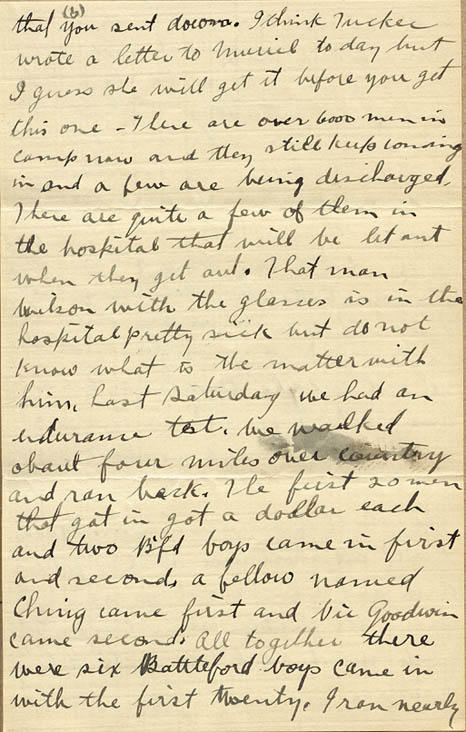 (6)
that you sent down. I think Tucker
wrote a letter to Muriel to day but
I guess she will get it before you get
this one - There are over 6000 men in
camp now and they still keep coming
in and a few are being discharged.
There are quite a few of them in
the hospital that will be let out
when they get out. That man
Wilson with the glasses is in the
hospital pretty sick but do not
know what is the matter with
him. Last Saturday we had an
endurance test. We walked
about four miles over country
and ran back. The first 50 men
that got in got a dollar each
and two Bfd boys came in first
and second, a fellow named
Ching came first and Vic Goodwin
came second. All together there
were six Battleford boys came in
with the first twenty. I ran nearly